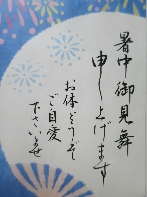 暑中御見舞
申し上げます
お体どうぞ
ご自愛
下さいませ